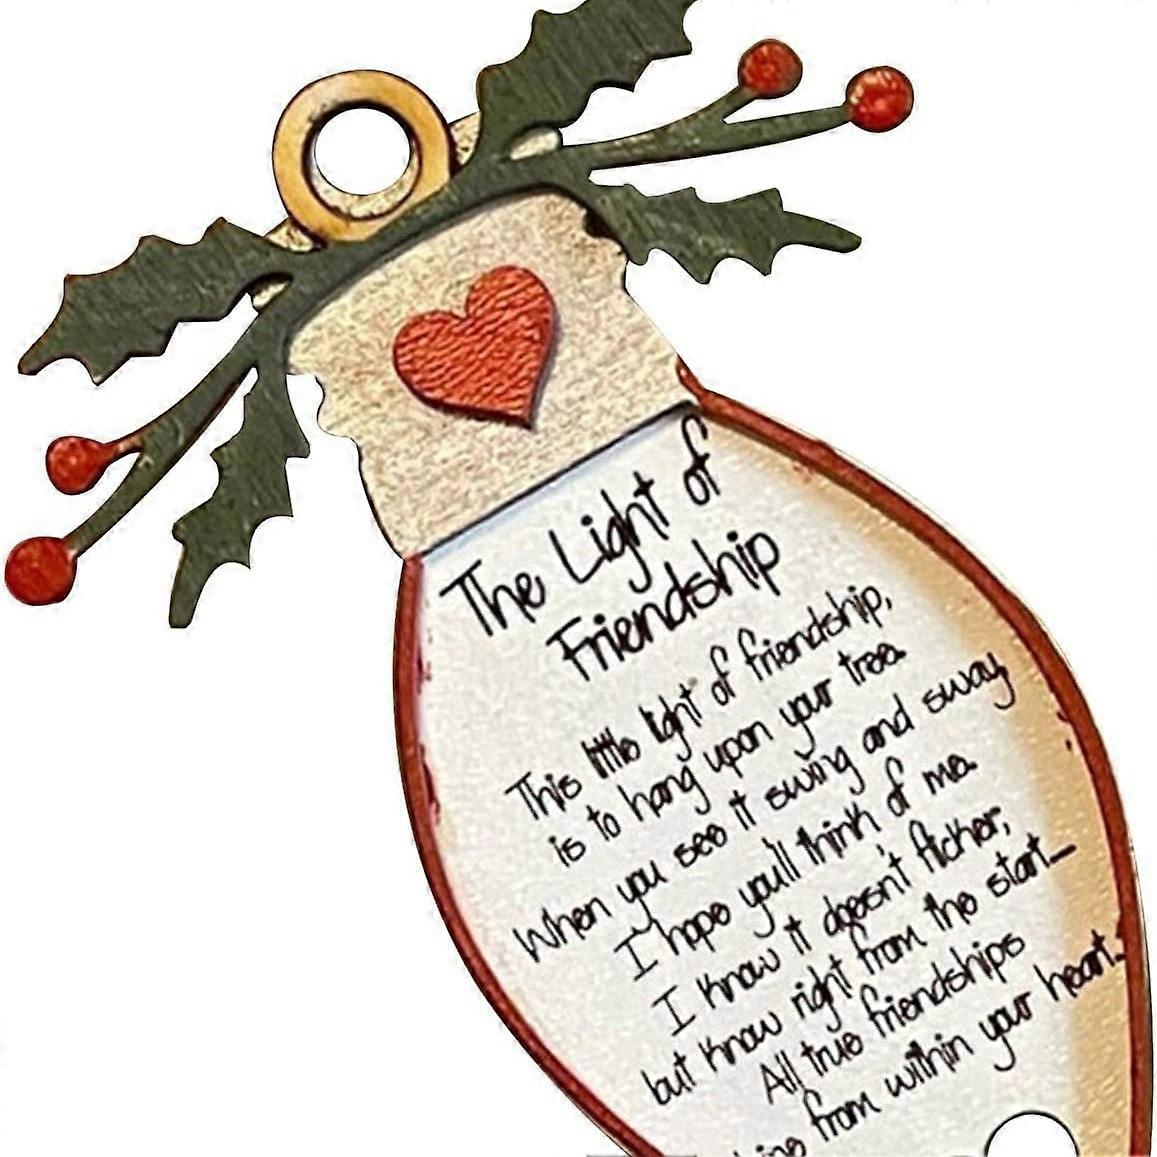 The Light of
Friendship
This little light of friendship,
is to hang upon your tree.
When you see it swing and sway
I hope you'll think of me.
I know it doesn't flicker,
but know right from the start...
All true friendships
from within your heart.